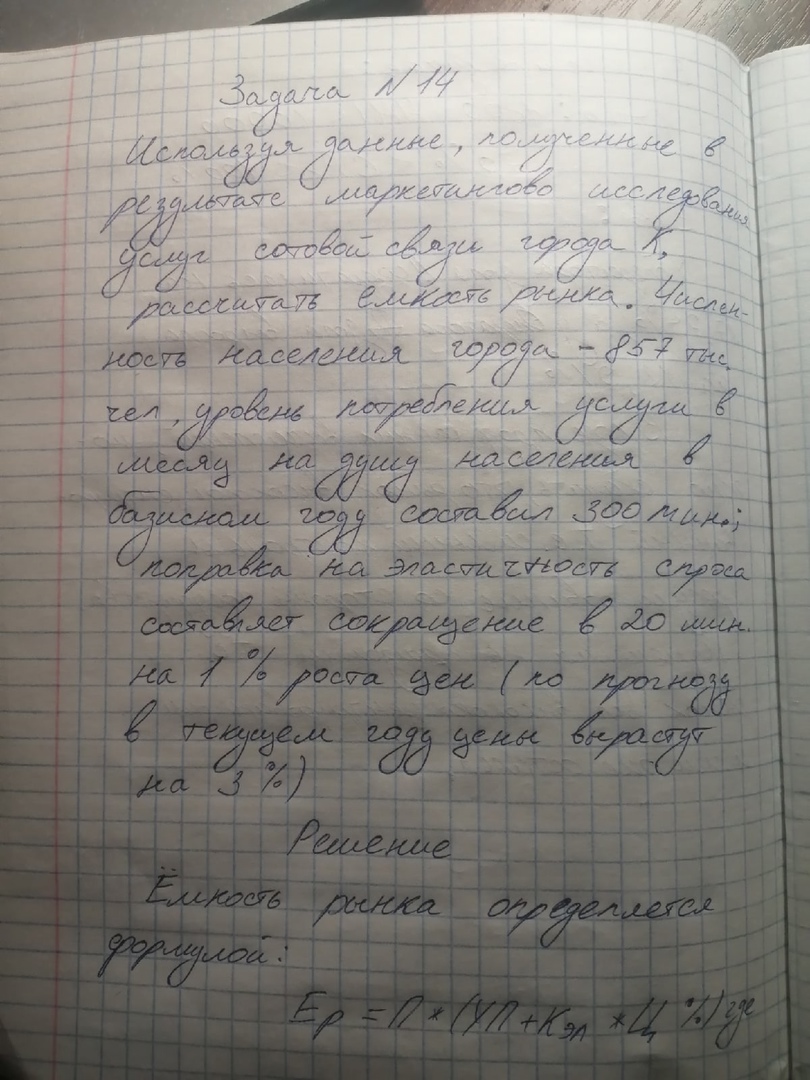 Задача N 14
Используя данные, полученные в
результате маркетингово исследования
услуг сотовой связи города К,
рассчитать емкость рынка. Числен-
ность населения города - 857 тыс.
чел, уровень потребления услуги в
месяц на душу населения в
базисном году составил 300 мин.;
поправка на эластичность спроса
составляет сокращение в 20 мин.
на 1 % роста цен (по прогнозу
в текущем году цены вырастут
на 3 %)
Решение
Ёмкость рынка определяется
формулой:
Ер = П * (УП + Кэл * Ц %) где